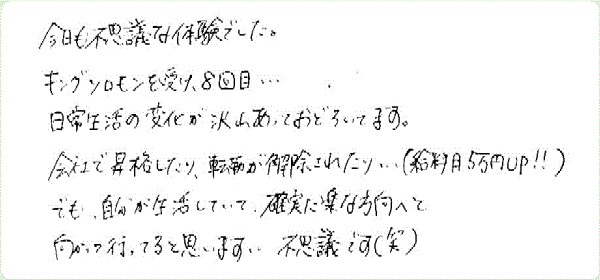 今日も不思議な体験でした。
キングソロモンを受け、8回目…
日常生活の変化が沢山あっておどろいてます。
会社で昇格したり、転勤が解除されたり…(給料月5万円UP!!)
でも、自分が生活していて、確実に楽な方向へと
向かって行ってると思います。不思議です(笑)